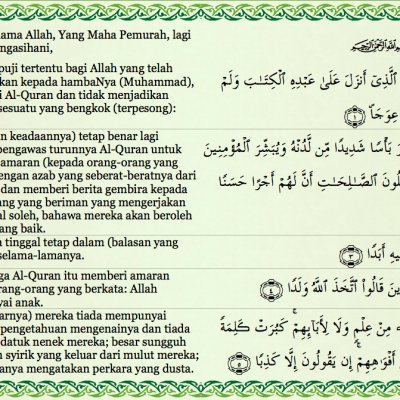 ama Allah, Yang Maha Pemurah, lagi
ngasihani,
puji tertentu bagi Allah yang telah
kan kepada hambaNya (Muhammad),
i Al-Quran dan tidak menjadikan
sesuatu yang bengkok (terpesong):
ٱلَّذِىٓ أَنزَلَ عَلَىٰ عَبْدِهِ ٱلْكِتَـٰبَ وَلَمْ
عِوَجَا ١
n keadaannya) tetap benar lagi
pengawas turunnya Al-Quran untuk
amaran (kepada orang-orang yang
engan azab yang seberat-beratnya dari
dan memberi berita gembira kepada
ang yang beriman yang mengerjakan
al soleh, bahawa mereka akan beroleh
ang baik.
رَ بَأْسًا شَدِيدًا مِّن لَّدُنْهُ وَيُبَشِّرَ ٱلْمُؤْمِنِينَ
لُونَ ٱلصَّـٰلِحَـٰتِ أَنَّ لَهُمْ أَجْرًا حَسَنًا
a tinggal tetap dalam (balasan yang
selama-lamanya.
يهِ أَبَدًا ٣
ga Al-Quran itu memberi amaran
rang-orang yang berkata: Allah
yai anak.
ينَ قَالُوا۟ ٱتَّخَذَ ٱللَّهُ وَلَدًا ٤
arnya) mereka tiada mempunyai
pengetahuan mengenainya dan tiada
datuk nenek mereka; besar sungguh
n syirik yang keluar dari mulut mereka;
anya mengatakan perkara yang dusta.
مِنْ عِلْمٍ وَلَا لِـَٔابَآئِهِمْ ۚ كَبُرَتْ كَلِمَةً
أَفْوَٰهِهِمْ ۚ إِن يَقُولُونَ إِلَّا كَذِبًا ٥